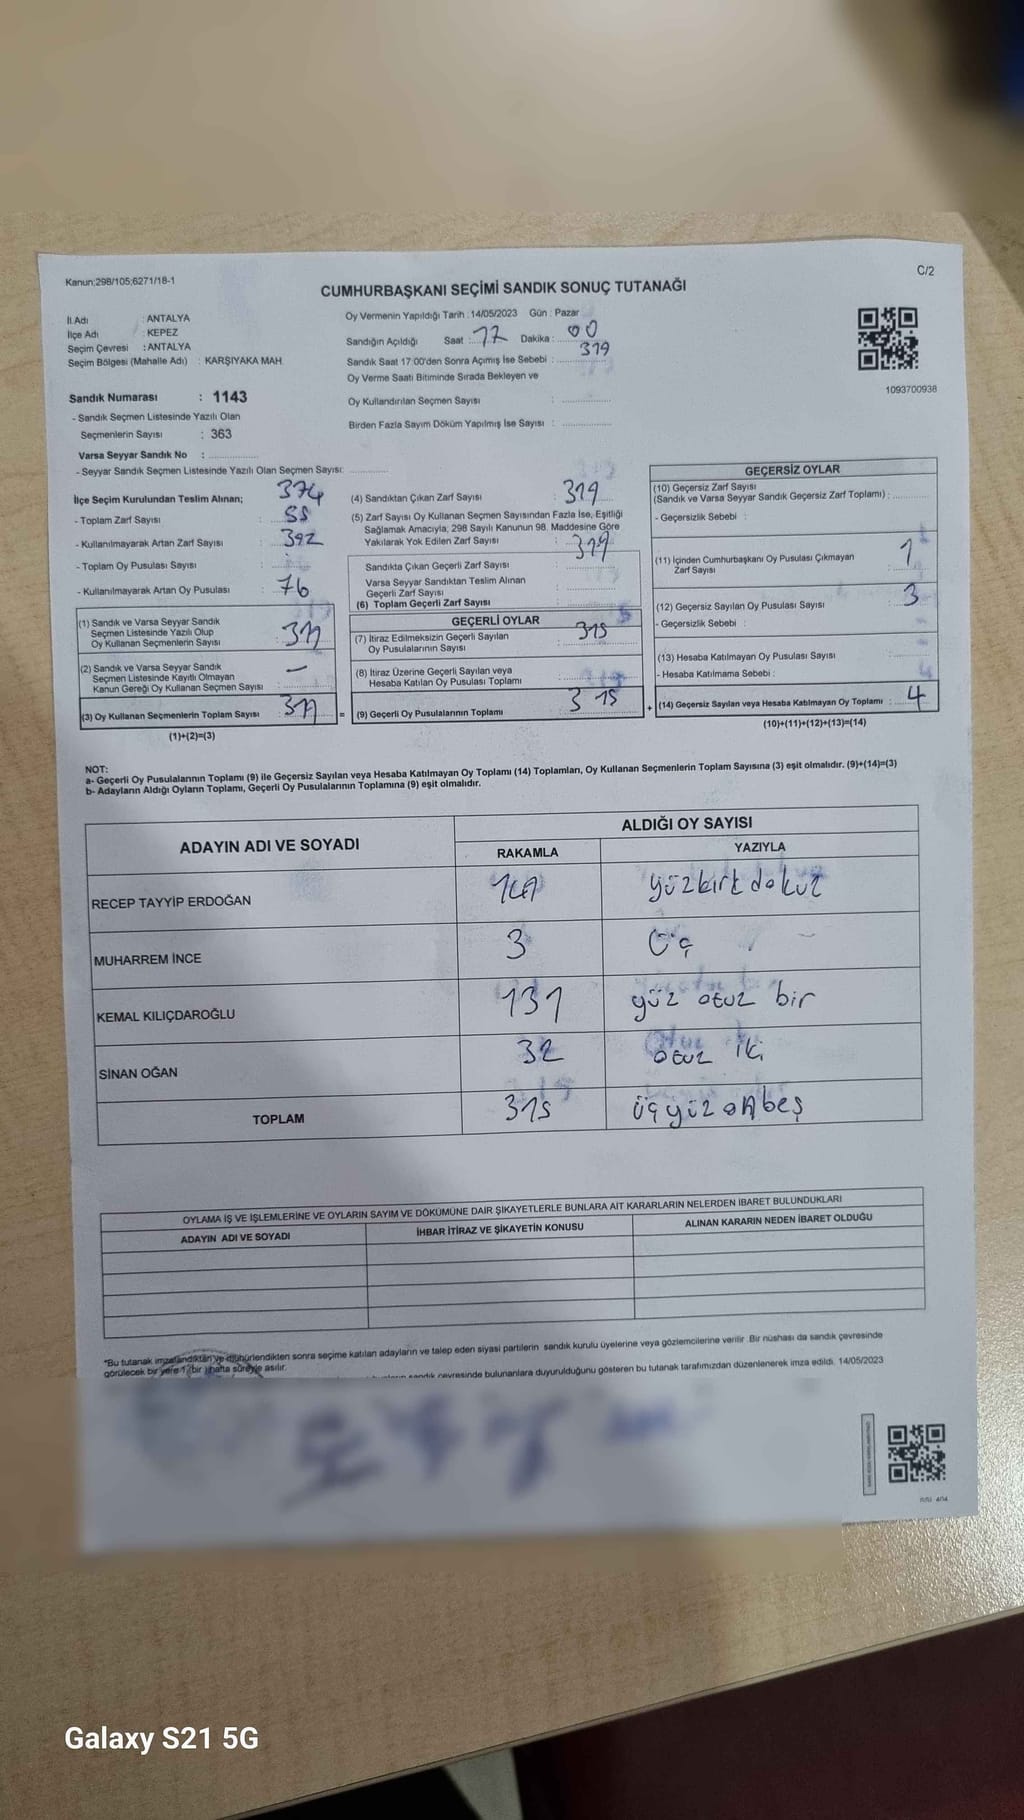 Kanun;298/105;6271/18-1
C/2
CUMHURBAŞKANI SEÇİMİ SANDIK SONUÇ TUTANAĞI
İl Adı : ANTALYA
İlçe Adı : KEPEZ
Seçim Çevresi : ANTALYA
Seçim Bölgesi (Mahalle Adı) : KARŞIYAKA MAH.
Sandık Numarası : 1143
- Sandık Seçmen Listesinde Yazılı Olan
Seçmenlerin Sayısı : 363
Varsa Seyyar Sandık No :
- Seyyar Sandık Seçmen Listesinde Yazılı Olan Seçmen Sayısı:
Oy Vermenin Yapıldığı Tarih : 14/05/2023 Gün : Pazar
Sandığın Açıldığı Saat : 17 Dakika : 00
319
Sandık Saat 17:00'den Sonra Açımış İse Sebebi :
Oy Verme Saati Bitiminde Sırada Bekleyen ve
Oy Kullandırılan Seçmen Sayısı :
Birden Fazla Sayım Döküm Yapılmış İse Sayısı :
1093700938
İlçe Seçim Kurulundan Teslim Alınan; 374
- Toplam Zarf Sayısı : 55
- Kullanılmayarak Artan Zarf Sayısı : 392
- Toplam Oy Pusulası Sayısı :
- Kullanılmayarak Artan Oy Pusulası : 76
(1) Sandık ve Varsa Seyyar Sandık
Seçmen Listesinde Yazılı Olup
Oy Kullanan Seçmenlerin Sayısı 319
(2) Sandık ve Varsa Seyyar Sandık
Seçmen Listesinde Kayıtlı Olmayan
Kanun Gereği Oy Kullanan Seçmen Sayısı : —
(3) Oy Kullanan Seçmenlerin Toplam Sayısı : 319 =
(1)+(2)=(3)
(4) Sandıktan Çıkan Zarf Sayısı : 319
(5) Zarf Sayısı Oy Kullanan Seçmen Sayısından Fazla İse, Eşitliği
Sağlamak Amacıyla, 298 Sayılı Kanunun 98. Maddesine Göre
Yakılarak Yok Edilen Zarf Sayısı :
319
Sandıkta Çıkan Geçerli Zarf Sayısı :
Varsa Seyyar Sandıktan Teslim Alınan
Geçerli Zarf Sayısı :
(6) Toplam Geçerli Zarf Sayısı :
GEÇERLİ OYLAR
(7) İtiraz Edilmeksizin Geçerli Sayılan
Oy Pusulalarının Sayısı : 315
(8) İtiraz Üzerine Geçerli Sayılan veya
Hesaba Katılan Oy Pusulası Toplamı :
(9) Geçerli Oy Pusulalarının Toplamı : 315 +
GEÇERSİZ OYLAR
(10) Geçersiz Zarf Sayısı
(Sandık ve Varsa Seyyar Sandık Geçersiz Zarf Toplamı) :
- Geçersizlik Sebebi :
(11) İçinden Cumhurbaşkanı Oy Pusulası Çıkmayan
Zarf Sayısı : 1
(12) Geçersiz Sayılan Oy Pusulası Sayısı : 3
- Geçersizlik Sebebi :
(13) Hesaba Katılmayan Oy Pusulası Sayısı :
- Hesaba Katılmama Sebebi :
(14) Geçersiz Sayılan veya Hesaba Katılmayan Oy Toplamı : 4
(10)+(11)+(12)+(13)=(14)
NOT:
a- Geçerli Oy Pusulalarının Toplamı (9) ile Geçersiz Sayılan veya Hesaba Katılmayan Oy Toplamı (14) Toplamları, Oy Kullanan Seçmenlerin Toplam Sayısına (3) eşit olmalıdır. (9)+(14)=(3)
b- Adayların Aldığı Oyların Toplamı, Geçerli Oy Pusulalarının Toplamına (9) eşit olmalıdır.
ADAYIN ADI VE SOYADI ALDIĞI OY SAYISI
RAKAMLA YAZIYLA
RECEP TAYYİP ERDOĞAN 149 yüzkırk dokuz
MUHARREM İNCE 3 Üç
KEMAL KILIÇDAROĞLU 131 yüz otuz bir
SİNAN OĞAN 32 otuz iki
TOPLAM 315 üçyüz onbeş
OYLAMA İŞ VE İŞLEMLERİNE VE OYLARIN SAYIM VE DÖKÜMÜNE DAİR ŞİKAYETLERLE BUNLARA AİT KARARLARIN NELERDEN İBARET BULUNDUKLARI
ADAYIN ADI VE SOYADI İHBAR İTİRAZ VE ŞİKAYETİN KONUSU ALINAN KARARIN NEDEN İBARET OLDUĞU
*Bu tutanak imzalandıktan ve mühürlendikten sonra seçime katılan adayların ve talep eden siyasi partilerin sandık kurulu üyelerine veya gözlemcilerine verilir. Bir nüshası da sandık çevresinde
görülecek bir yere 1 (bir) hafta süreyle asılır.
sandık çevresinde bulunanlara duyurulduğunu gösteren bu tutanak tarafımızdan düzenlenerek imza edildi. 14/05/2023
Galaxy S21 5G